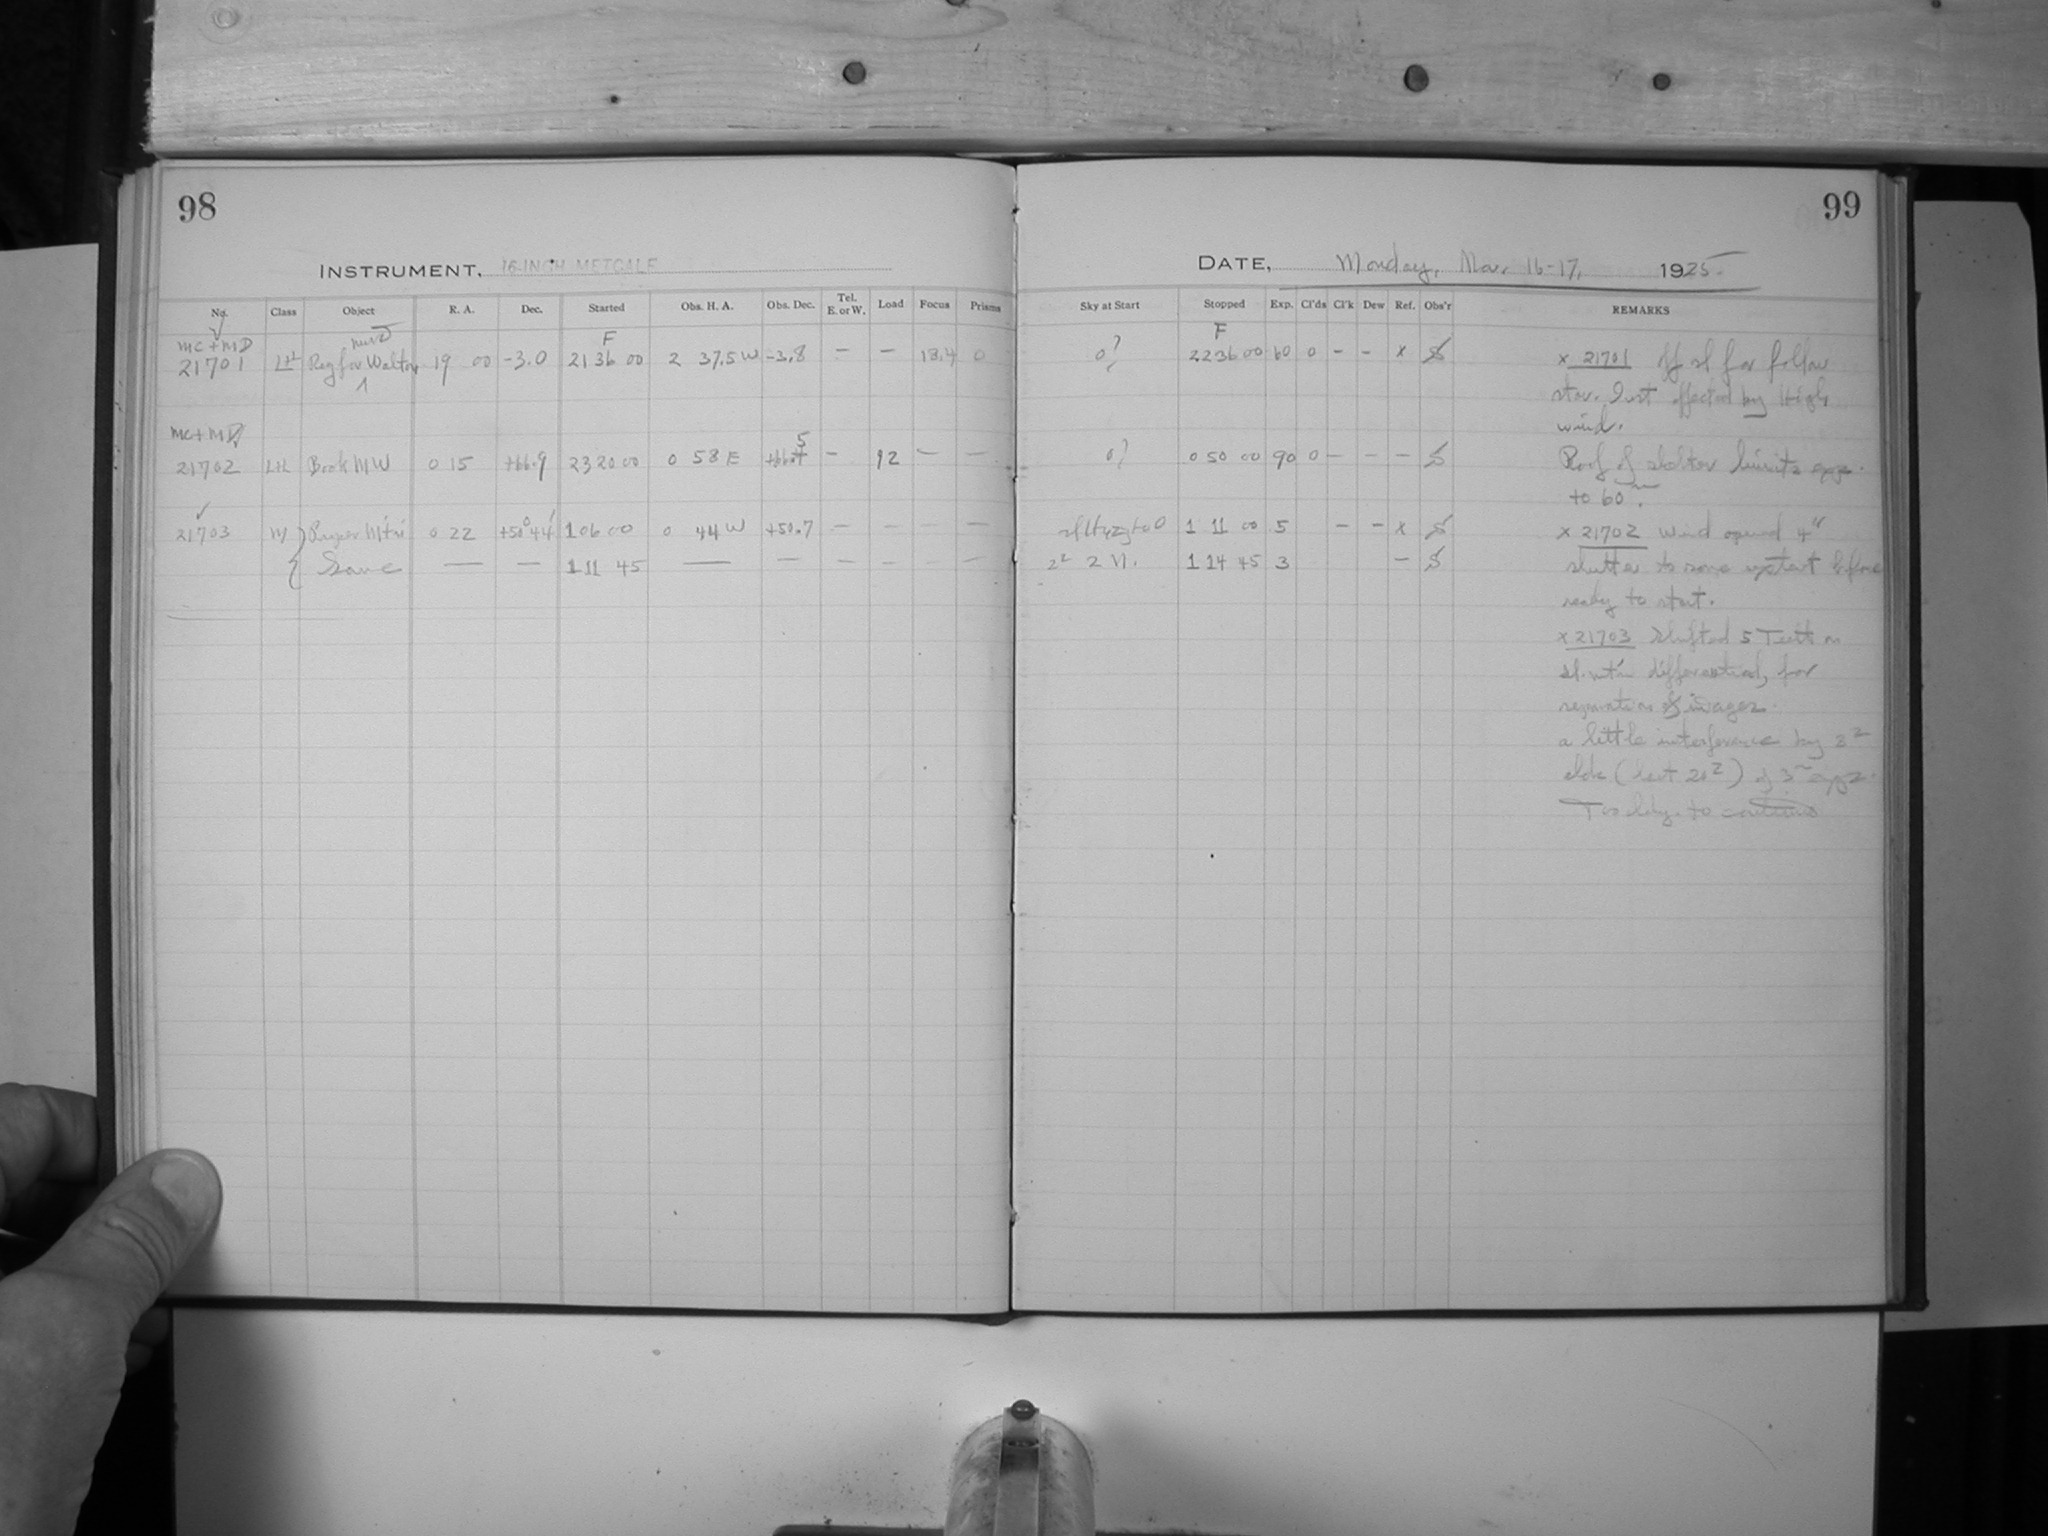 98
INSTRUMENT, 16-INCH METCALF
No. Class Object R. A. Dec. Started Obs. H. A. Obs. Dec. Tel. E. or W. Load Focus Prisms
MC + MD F
21701 Reg for Walton 19 00 -3.0 21 36 00 2 37.5 W -3.8 — — 13.4 0
MC + MD 5
21702 Book MW 0 15 +66.9 23 20 00 0 58 E — 12 — —
21703 0 22 +50° 44' 1 06 00 0 44 W +50.7 — — — —
Same — — 1 11 45 — — — — — —
99
DATE, Monday, Mar. 16-17, 1925
Sky at Start Stopped Exp. Cl'ds Cl'k Dew Ref. Obs'r REMARKS
F
0? 22 36 00 60 0 - - x x 21701 off sl for follow
star. Inst affected by High
wind.
0? 0 50 00 90 0 - - - Roof of shelter limits exp.
to 60m.
1 11 00 5 - - x x 21702 Wind opened 4"
1 14 45 3 - shutter to some extent before
ready to start.
x 21703 Shifted 5 Teeth on
differential, for
separation of images.
a little interference by
clds (last 20s) of 3m exp.
to continue